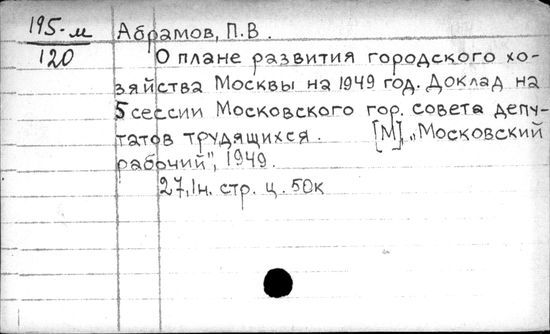 195-м
120
Абрамов, П.В.
О плане развития городского хо-
зяйства Москвы на 1949 год. Доклад на
5 сессии Московского гор. совета депу-
татов трудящихся. [М], „Московский
рабочий", 1949.
27, 1н. стр. ц. 50к